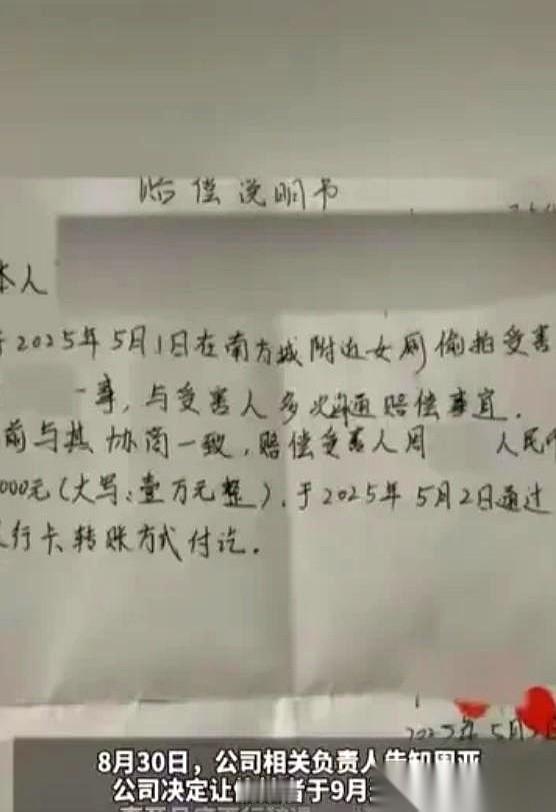 赔偿说明书
本人
于2025年5月1日在南方城附近女厕偷拍受害
一事,与受害人多次沟通赔偿事宜.
前与其协商一致,赔偿受害人周 人民币
000元(大写:壹万元整).于2025年5月2日通过
银行卡转账方式付讫.
2025年5月
8月30日,公司相关负责人告知周亚
公司决定让 者于9月